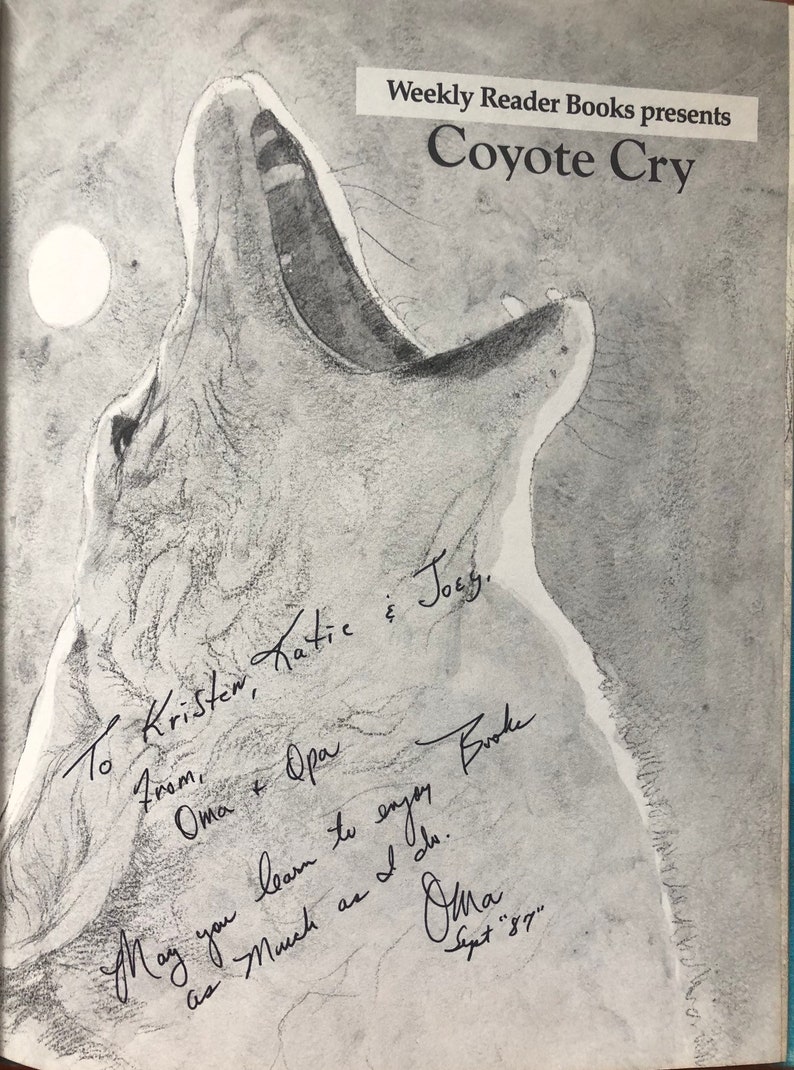 Weekly Reader Books presents
Coyote Cry
To Kristen, Katie & Joey.
From,
Oma + Opa
May you learn to enjoy Books
as Much as I do.
Oma
Sept "87"